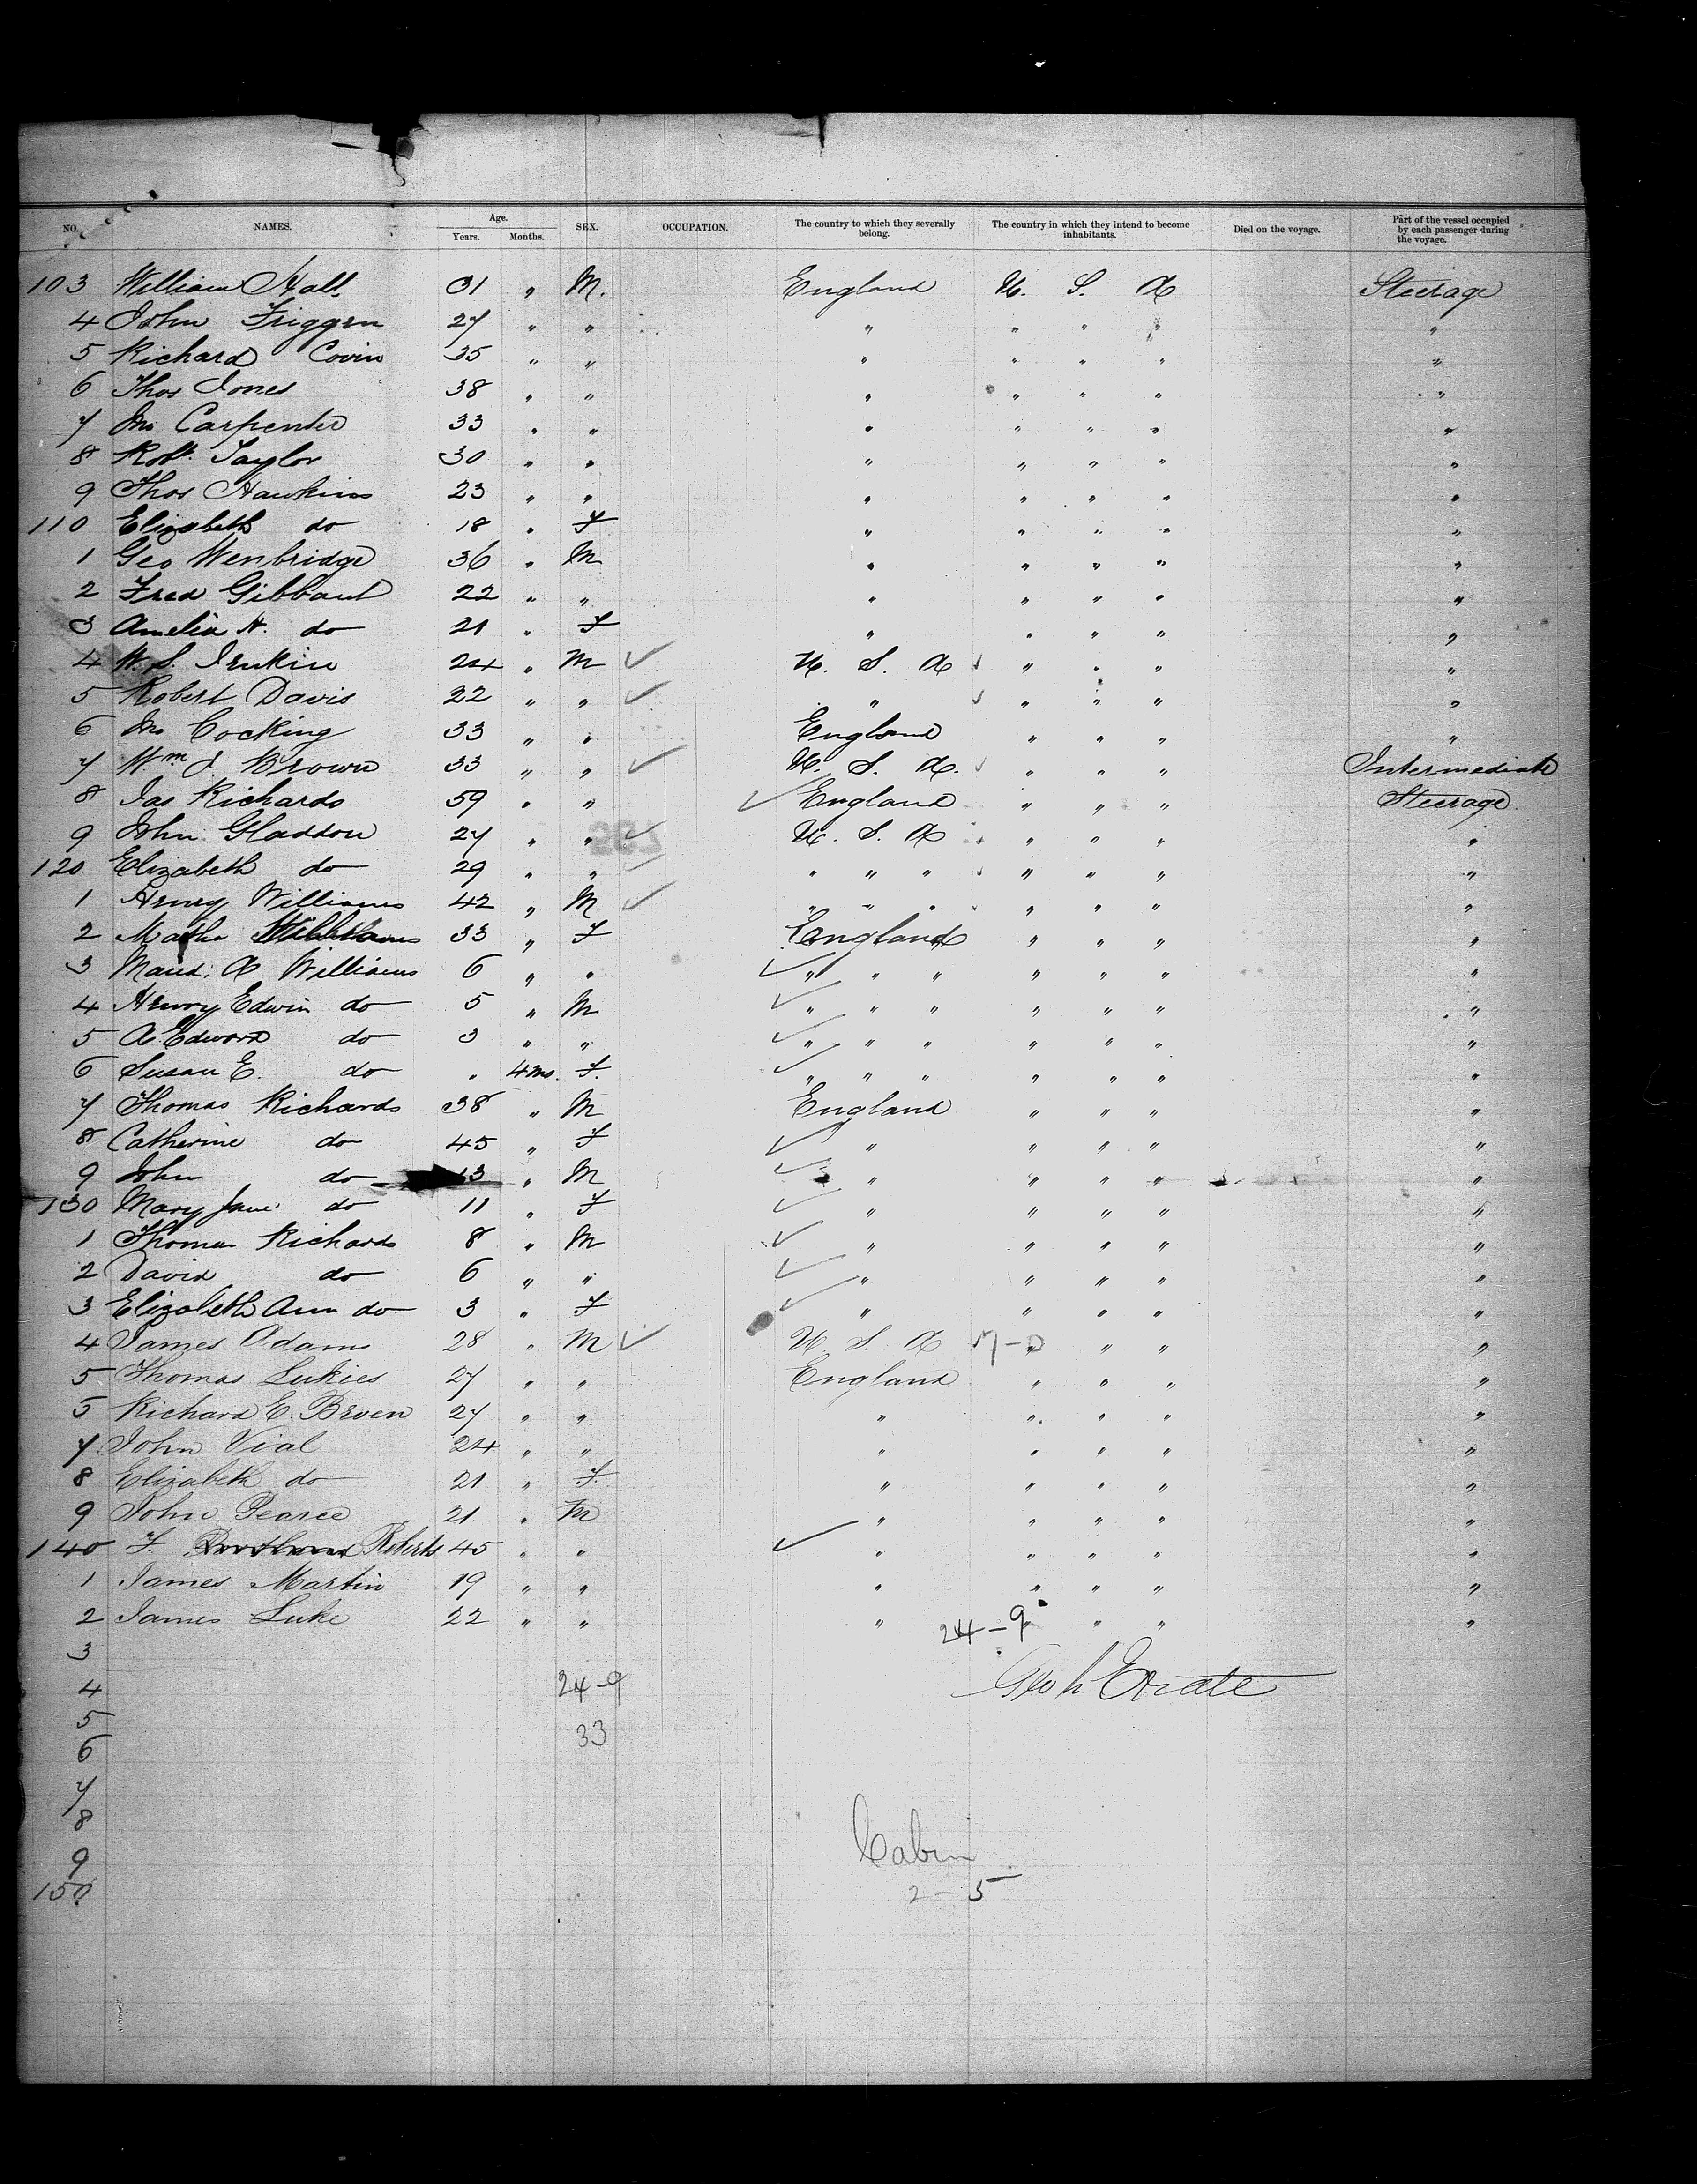 NO. NAMES. Age. Years. Months. SEX. OCCUPATION. The country to which they severally belong. The country in which they intend to become inhabitants. Died on the voyage. Part of the vessel occupied by each passenger during the voyage.
103 William Hall 31 " M. England U. S. A Steerage
4 John Triggen 27 " " " " " " "
5 Richard Covin 35 " " " " " " "
6 Thos Jones 38 " " " " " " "
7 Jno Carpenter 33 " " " " " " "
8 Robt. Taylor 30 " " " " " " "
9 Thos Hawkins 23 " " " " " " "
110 Elizabeth do 18 " F " " " " "
1 Geo Wenbridge 36 " M " " " " "
2 Fred Gibbard 22 " " " " " " "
3 Amelia H. do 21 " F " " " " "
4 W. S. Irukin 24 " M U. S. A " " " "
5 Robert Davis 22 " " " " " " "
6 Jno Cocking 33 " " England " " " "
7 Wm J Brown 33 " " U. S. A. " " " Intermediate
8 Jas Richards 59 " " England " " " Steerage
9 John Gladdon 27 " " U. S. A " " " "
120 Elizabeth do 29 " " " " " " " " "
1 Henry Williams 42 " M " " " " " " "
2 Martha Williams 33 " F England " " " "
3 Maud. A Williams 6 " " " " " " " " "
4 Henry Edwin do 5 " M " " " " " " "
5 A. Edward do 3 " " " " " " " " "
6 Susan E. do " 4 mo. F. " " " " " " "
7 Thomas Richards 38 " M England " " " "
8 Catherine do 45 " F " " " " "
9 John do 13 " M " " " " "
130 Mary Jane do 11 " F " " " " "
1 Thomas Richards 8 " M " " " " "
2 David do 6 " " " " " " "
3 Elizabeth Ann do 3 " F " " " " "
4 James Adams 28 " M U. S. A 7-0 " " " "
5 Thomas Lukies 27 " " England " " " "
5 Richard E. Broen 27 " " " " " " "
7 John Vial 24 " " " " " " "
8 Elizabeth do 21 " F. " " " " "
9 John Pearce 21 " M " " " " "
140 F. Roberts 45 " " " " " " "
1 James Martin 19 " " " " " " "
2 James Luke 22 " " " " " " "
24-9
3
4 24-9
5
33
6
7
8
Cabin
9
150 2-5